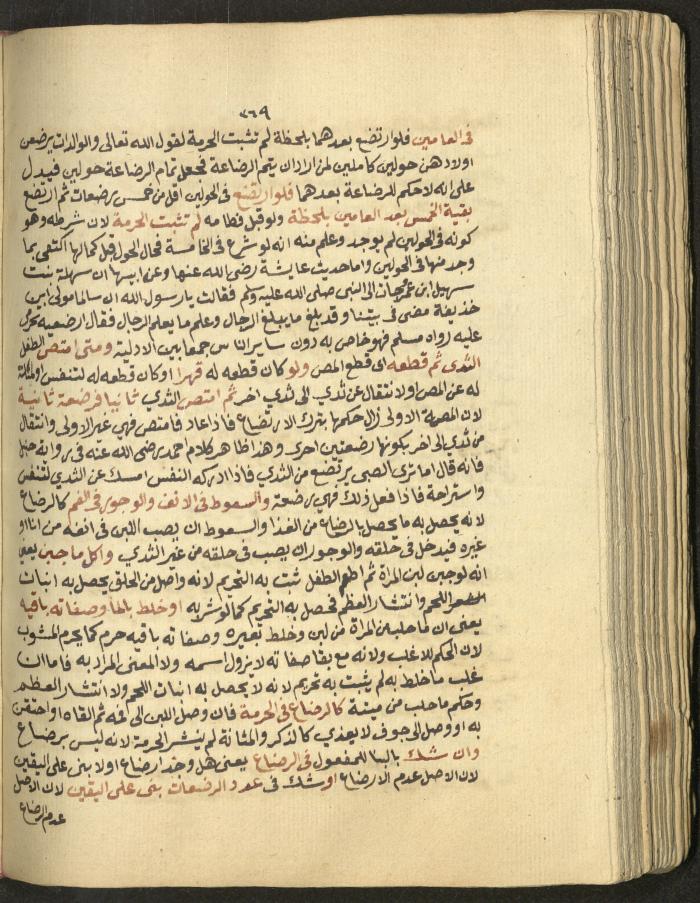 ٣٦٩
في العامين فلو ارتضع بعدهما بلحظة لم تثبت الحرمة لقول الله تعالى والوالدات يرضعن
اولادهن حولين كاملين لمن اراد ان يتم الرضاعة فجعل تمام الرضاعة حولين فيدل
على انه لا حكم للرضاعة بعدهما فلو ارتضع في الحولين اقل من خمس رضعات ثم ارتضع
بقية الخمس بعد العامين بلحظة ولو قبل فطامه لم تثبت الحرمة لان شرطه وهو
كونه في الحولين لم يوجد وعلم منه انه لو شرع في الخامسة فحال الحول قبل كمالها اكتفى بما
وجد منها في الحولين واما حديث عايشة رضي الله عنها وعن ابيها ان سهلة بنت
سهيل ابن عمرو جات الى النبي صلى الله عليه وسلم فقالت يارسول الله ان سالما مولى ابن
حذيفة مضى في بيتنا وقد بلغ ما يبلغ الرجال وعلم ما يعلم الرجال فقال ارضعيه تحرمي
عليه رواه مسلم فهو خاص به دون ساير الناس جمعا بين الادلية ومتى امتص الطفل
الثدي ثم قطعه اى قطع المص ولو كان قطعه له قهرا او كان قطعه له لتنفس او ملالة
له عن المص او لانتقال عن ثدي الى ثدي اخر ثم امتص الثدي ثانيا فرضعة ثانية
لان المصة الاولى زال حكمها بترك الارتضاع فاذا عاد فامتص فهي غير الاولى وانتقال
من ثدي الى اخر يكونها رضعتين اخرى وهذا ظاهر كلام احمد رضي الله عنه في رواية حنبل
فانه قال اما ترى الصبي يرتضع من الثدي فاذا ادركه النفس امسك عن الثدي لتنفس
واستراحة فاذا فعل ذلك فهي رضعة والسعوط في الانف والوجور في الفم كالرضاع
لانه يحصل به ما يحصل بالرضاع من الغذا والسعوط ان يصب اللبن في انفه من انا او
غيره فيدخل في حلقه والوجور ان يصب في حلقه من غير الثدي واكل ما جبن يعني
انه لو جبن لبن المراة ثم اطعم الطفل ثبت به التحريم لانه واصل من الحلق يحصل به انبات
اللحم وانتشار العظم فحصل به التحريم كما لو شربه او خلط بالما وصفاته باقيه
يعني ان ما حلب من المراة من لبن وخلط بغيره وصفاته باقيه حرم كما يحرم المشوب
لان الحكم للاغلب ولانه مع بقا صفاته لا يزول اسمه ولا المعنى المراد به فاما ان
غلب ما خلط به لم يثبت به تحريم لانه لا يحصل به انبات اللحم ولا انتشار العظم
وحكم ما حلب من ميتة كالرضاع في الحرمة فان وصل اللبن الى فمه ثم القاه او احتقن
به او وصل الى جوف لا يغذي كالذكر والمثانة لم ينشر الحرمة لانه ليس برضاع
وان شك بالبنا للمفعول في الرضاع يعني هل وجد ارضاع او لا بنى على اليقين
لان الاصل عدم الارضاع او شك في عدد الرضعات بنى على اليقين لان الاصل
عدم الرضاع